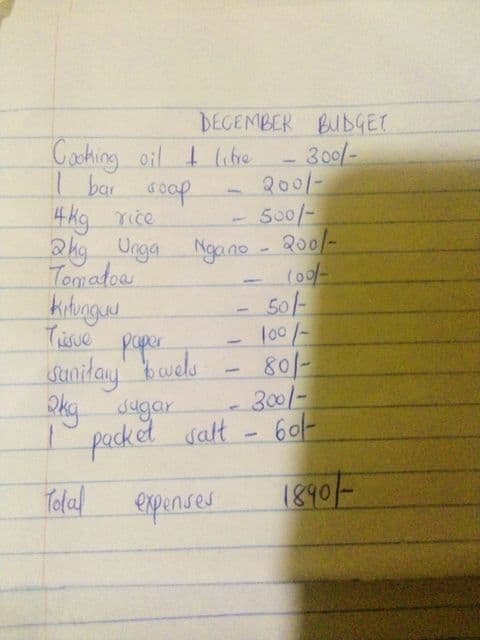 DECEMBER BUDGET
Cooking oil 1 litre - 300/-
1 bar soap - 200/-
4kg rice - 500/-
2kg Unga Ngano - 200/-
Tomatoes - 100/-
Kitunguu - 50/-
Tissue paper - 100/-
sanitary towels - 80/-
2kg sugar - 300/-
1 packet salt - 60/-
Total expenses 1890/-